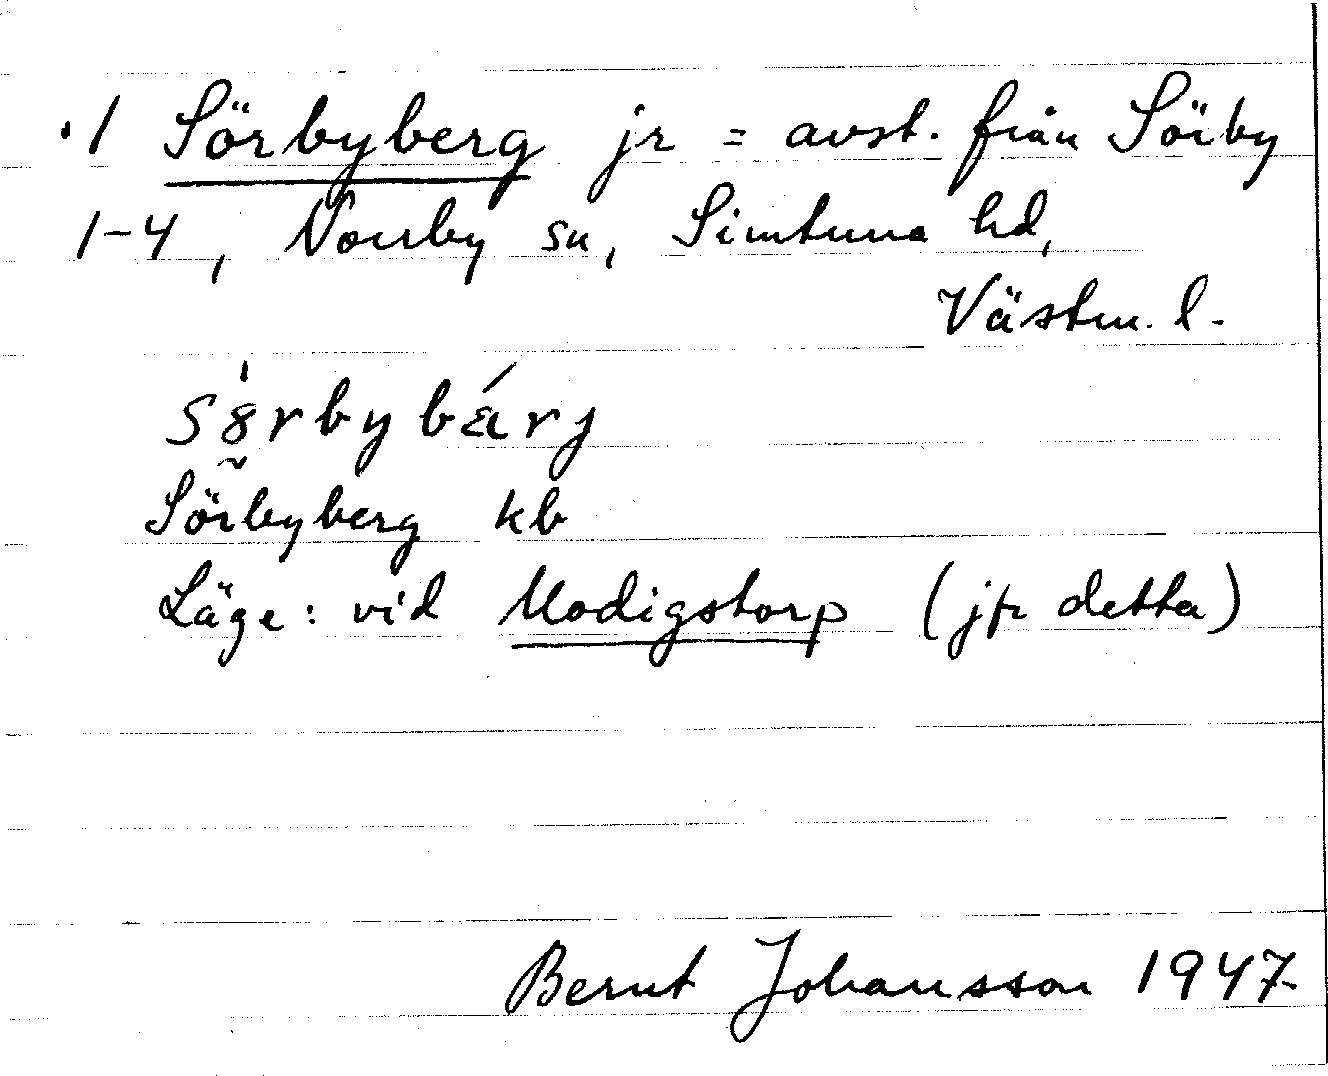 ·1 Sörbyberg jr = avst. från Sörby
1-4, Norrby sn, Simtuna hd,
Västm. l.
sörbybä́rj
Sörbyberg kb
Läge: vid Modigstorp (jfr detta)
Bernt Johansson 1947.